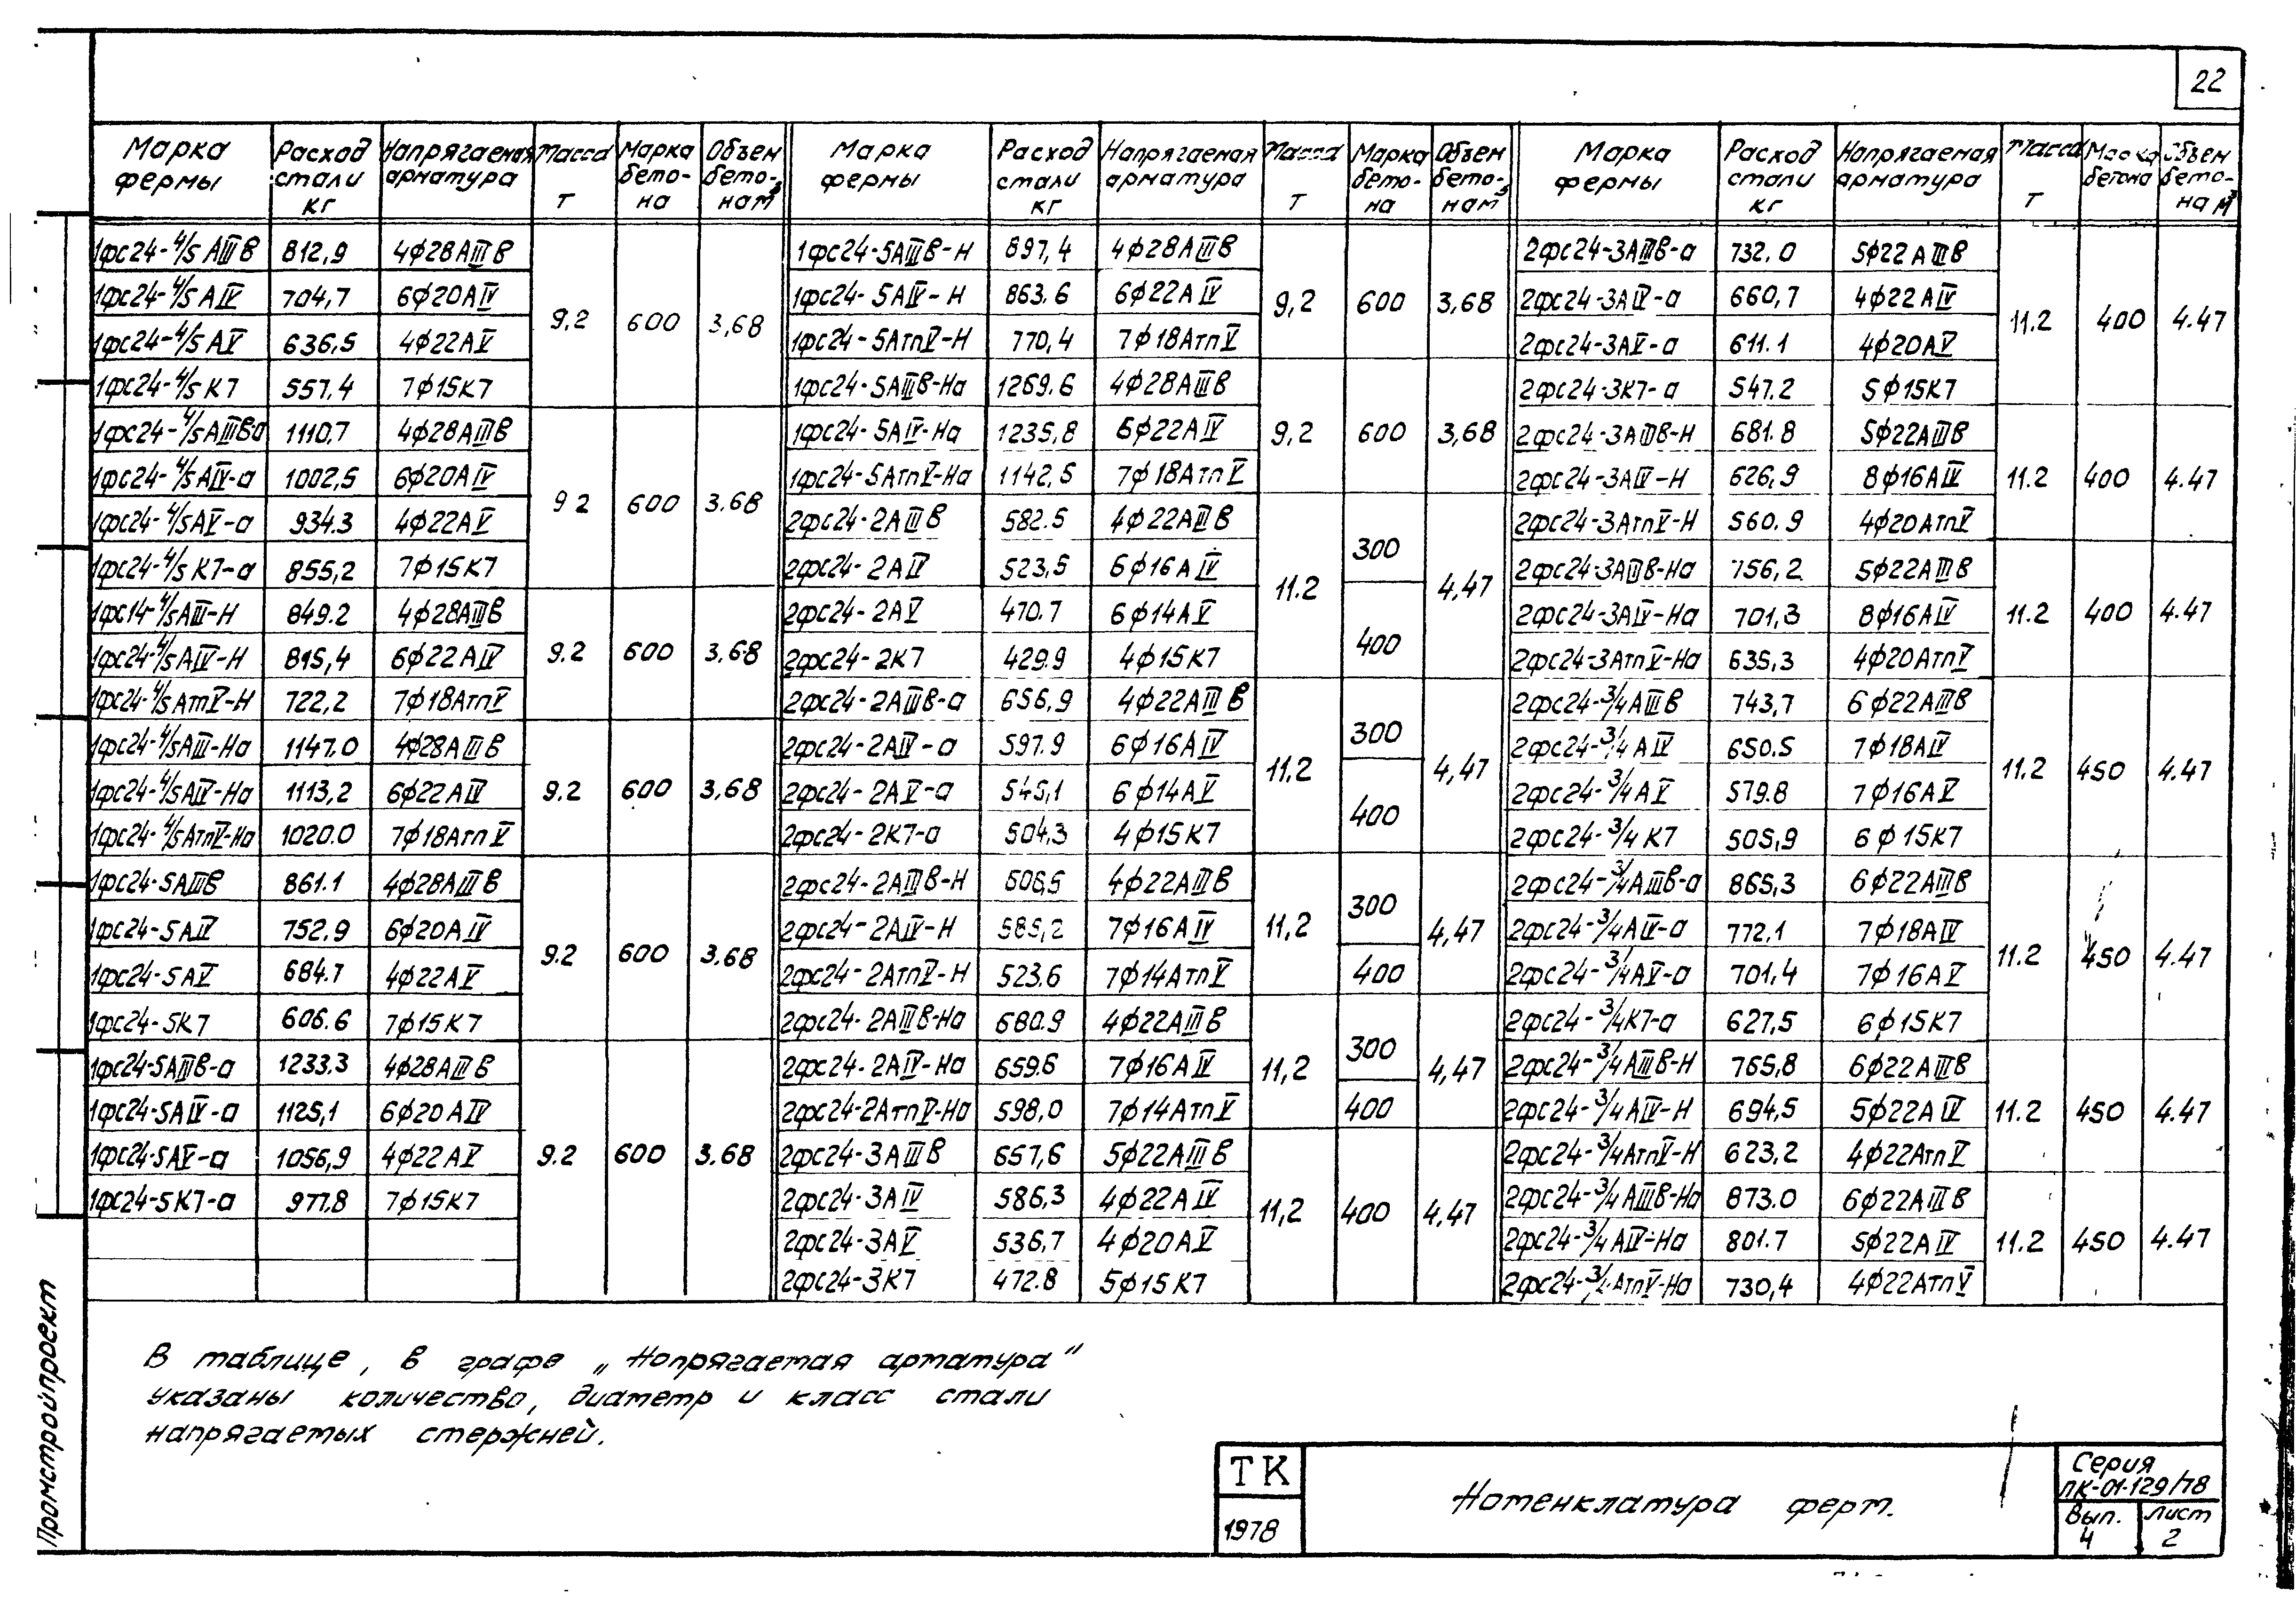 22
Марка фермы | Расход стали кг | Напрягаемая арматура | Масса Т | Марка бето-на | Объем бето-на м³ | Марка фермы | Расход стали кг | Напрягаемая арматура | Масса Т | Марка бето-на | Объем бето-на м³ | Марка фермы | Расход стали кг | Напрягаемая арматура | Масса Т | Марка бетона | Объем бето-на м³
1фс24-4/5 АIIIв 812,9 4ф28АIIIв
1фс24-4/5 АIV 704,7 6ф20АIV
1фс24-4/5 АV 636,5 4ф22АV
1фс24-4/5 К7 557,4 7ф15К7
9,2 600 3,68
1фс24-4/5АIIIва 1110,7 4ф28АIIIв
1фс24-4/5АIV-а 1002,5 6ф20АIV
1фс24-4/5АV-а 934.3 4ф22АV
1фс24-4/5 К7-а 855,2 7ф15К7
9 2 600 3.68
1фс14-4/5АIII-Н 849.2 4ф28АIIIв
1фс24-4/5АIV-Н 815,4 6ф22АIV
1фс24-4/5АтпV-Н 722,2 7ф18АтпV
9.2 600 3,68
1фс24-4/5АIII-На 1147.0 4ф28АIIIв
1фс24-4/5АIV-На 1113,2 6ф22АIV
1фс24-4/5АтпV-На 1020.0 7ф18АтпV
9.2 600 3,68
1фс24-5АIIIв 861.1 4ф28АIIIв
1фс24-5АIV 752.9 6ф20АIV
1фс24-5АV 684.7 4ф22АV
1фс24-5К7 606.6 7ф15К7
9.2 600 3.68
1фс24-5АIIIв-а 1233.3 4ф28АIIIв
1фс24-5АIV-а 1125,1 6ф20АIV
1фс24-5АV-а 1056,9 4ф22АV
1фс24-5К7-а 977.8 7ф15К7
9.2 600 3.68
1фс24-5АIIIв-Н 897,4 4ф28АIIIв
1фс24-5АIV-Н 863.6 6ф22АIV
1фс24-5АтпV-Н 770,4 7ф18АтпV
9,2 600 3,68
1фс24-5АIIIв-На 1269.6 4ф28АIIIв
1фс24-5АIV-На 1235,8 6ф22АIV
1фс24-5АтпV-На 1142,5 7ф18АтпV
9,2 600 3,68
2фс24-2АIIIв 582.5 4ф22АIIIв
2фс24-2АIV 523,5 6ф16АIV
2фс24-2АV 470.7 6ф14АV
2фс24-2К7 429.9 4ф15К7
11.2 300 400 4,47
2фс24-2АIIIв-а 656,9 4ф22АIIIв
2фс24-2АIV-а 597.9 6ф16АIV
2фс24-2АV-а 545,1 6ф14АV
2фс24-2К7-а 504,3 4ф15К7
11.2 300 400 4,47
2фс24-2АIIIв-Н 4ф22АIIIв
2фс24-2АIV-Н 585,2 7ф16АIV
2фс24-2АтпV-Н 523.6 7ф14АтпV
11,2 300 400 4,47
2фс24-2АIIIв-На 680.9 4ф22АIIIв
2фс24-2АIV-На 659.6 7ф16АIV
2фс24-2АтпV-На 598,0 7ф14АтпV
11,2 300 400 4,47
2фс24-3АIIIв 657,6 5ф22АIIIв
2фс24-3АIV 586,3 4ф22АIV
2фс24-3АV 536,7 4ф20АV
2фс24-3К7 472.8 5ф15К7
11,2 400 4,47
2фс24-3АIIIв-а 732.0 5ф22АIIIв
2фс24-3АIV-а 660,7 4ф22АIV
2фс24-3АV-а 611.1 4ф20АV
2фс24-3К7-а 547.2 5ф15К7
11.2 400 4.47
2фс24-3АIIIв-Н 681.8 5ф22АIIIв
2фс24-3АIV-Н 626,9 8ф16АIV
2фс24-3АтпV-Н 560.9 4ф20АтпV
11.2 400 4.47
2фс24-3АIIIв-На 756,2 5ф22АIIIв
2фс24-3АIV-На 701,3 8ф16АIV
2фс24-3АтпV-На 635,3 4ф20АтпV
11.2 400 4.47
2фс24-3/4АIIIв 743,7 6ф22АIIIв
2фс24-3/4АIV 650.5 7ф18АIV
2фс24-3/4АV 579.8 7ф16АV
2фс24-3/4К7 505,9 6ф15К7
11.2 450 4.47
2фс24-3/4АIIIв-а 865,3 6ф22АIIIв
2фс24-3/4АIV-а 772,1 7ф18АIV
2фс24-3/4АV-а 701.4 7ф16АV
2фс24-3/4К7-а 627,5 6ф15К7
11.2 450 4.47
2фс24-3/4АIIIв-Н 765,8 6ф22АIIIв
2фс24-3/4АIV-Н 694,5 5ф22АIV
2фс24-3/4АтпV-Н 623,2 4ф22АтпV
11.2 450 4.47
2фс24-3/4АIIIв-На 873.0 6ф22АIIIв
2фс24-3/4АIV-На 801.7 5ф22АIV
2фс24-3/4АтпV-На 730,4 4ф22АтпV
11.2 450 4.47
В таблице, в графе „Напрягаемая арматура“
указаны количество, диаметр и класс стали
напрягаемых стержней.
Промстройпроект
ТК
1978
Номенклатура ферм.
Серия
ПК-01-129/78
Вып. 4
Лист 2